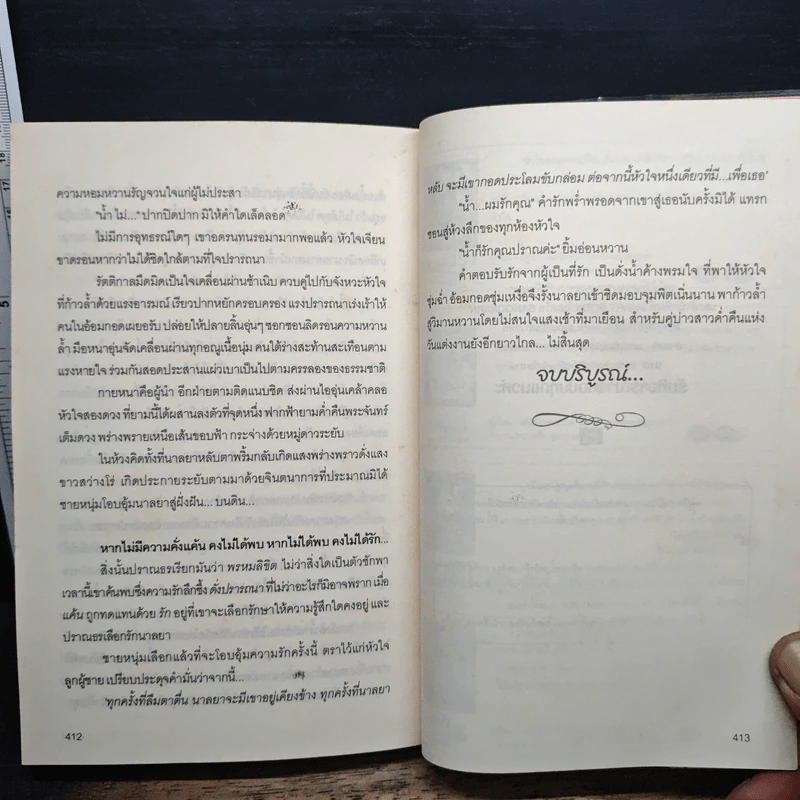 ความหอมหวานรัญจวนใจแก่ผู้ไม่ประสา
"น้ำ ไม่..." ปากปิดปาก มิให้คำใดเล็ดลอด
ไม่มีการอุทธรณ์ใดๆ เขาอดรนทนรอมามากพอแล้ว หัวใจเจียน
ขาดรอนหากว่าไม่ได้ชิดใกล้ตามที่ใจปรารถนา
รัตติกาลมืดมิดเป็นใจเคลื่อนผ่านช้าเนิบ ควบคู่ไปกับจังหวะหัวใจ
ที่ก้าวล้ำด้วยแรงอารมณ์ เรียวปากหยักครอบครอง แรงปรารถนาเร่งเร้าให้
คนในอ้อมกอดเผยอรับ ปล่อยให้ปลายลิ้นอุ่นๆ ซอกซอนลิดรอนความหวาน
ล้ำ มือหนาอุ่นจัดเคลื่อนผ่านทุกอณูเนื้อนุ่ม คนใต้ร่างสะท้านสะเทือนตาม
แรงหายใจ ร่วมกันสอดประสานแผ่วเบาเป็นไปตามครรลองของธรรมชาติ
กายหนาคือผู้นำ อีกฝ่ายตามติดแนบชิด ส่งผ่านไออุ่นเคล้าคลอ
หัวใจสองดวง ที่ยามนี้ได้ผสานลงตัวที่จุดหนึ่ง ฟากฟ้ายามค่ำคืนพระจันทร์
เต็มดวง พร่างพรายเหนือเส้นขอบฟ้า กระจ่างด้วยหมู่ดาวระยับ
ในห้วงคิดทั้งที่นาลยาหลับตาพริ้มกลับเกิดแสงพร่างพราวดั่งแสง
ขาวสว่างโร่ เกิดประกายระยับตามมาด้วยจินตนาการที่ประมาณมิได้
ชายหนุ่มโอบอุ้มนาลยาสู่ฝั่งฝัน... บนดิน...
หากไม่มีความคั่งแค้น คงไม่ได้พบ หากไม่ได้พบ คงไม่ได้รัก...
สิ่งนั้นปราณธรเรียกมันว่า พรหมลิขิต ไม่ว่าสิ่งใดเป็นตัวชักพา
เวลานี้เขาค้นพบซึ่งความรักลึกซึ้ง ดั่งปรารถนา ที่ไม่ว่าอะไรก็มิอาจพราก เมื่อ
แค้น ถูกทดแทนด้วย รัก อยู่ที่เขาจะเลือกรักษาให้ความรู้สึกใดคงอยู่ และ
ปราณธรเลือกรักนาลยา
ชายหนุ่มเลือกแล้วที่จะโอบอุ้มความรักครั้งนี้ ตราไว้แก่หัวใจ
ลูกผู้ชาย เปรียบประดุจคำมั่นว่าจากนี้...
'ทุกครั้งที่ลืมตาตื่น นาลยาจะมีเขาอยู่เคียงข้าง ทุกครั้งที่นาลยา
412
หลับ จะมีเขากอดประโลมขับกล่อม ต่อจากนี้หัวใจหนึ่งเดียวที่มี...เพื่อเธอ'
"น้ำ...ผมรักคุณ" คำรักพร่ำพรอดจากเขาสู่เธอนับครั้งมิได้ แทรก
ซอนสู่ห้วงลึกของทุกห้องหัวใจ
"น้ำก็รักคุณปราณค่ะ" ยิ้มอ่อนหวาน
คำตอบรับรักจากผู้เป็นที่รัก เป็นดั่งน้ำค้างพรมใจ ที่พาให้หัวใจ
ชุ่มฉ่ำ อ้อมกอดชุ่มเหงื่อจึงรั้งนาลยาเข้าชิดมอบจุมพิตเนิ่นนาน พาก้าวล้ำ
สู่วิมานหวานโดยไม่สนใจแสงเช้าที่มาเยือน สำหรับคู่บ่าวสาวค่ำคืนแห่ง
วันแต่งงานยังอีกยาวไกล... ไม่สิ้นสุด
จบบริบูรณ์...
413